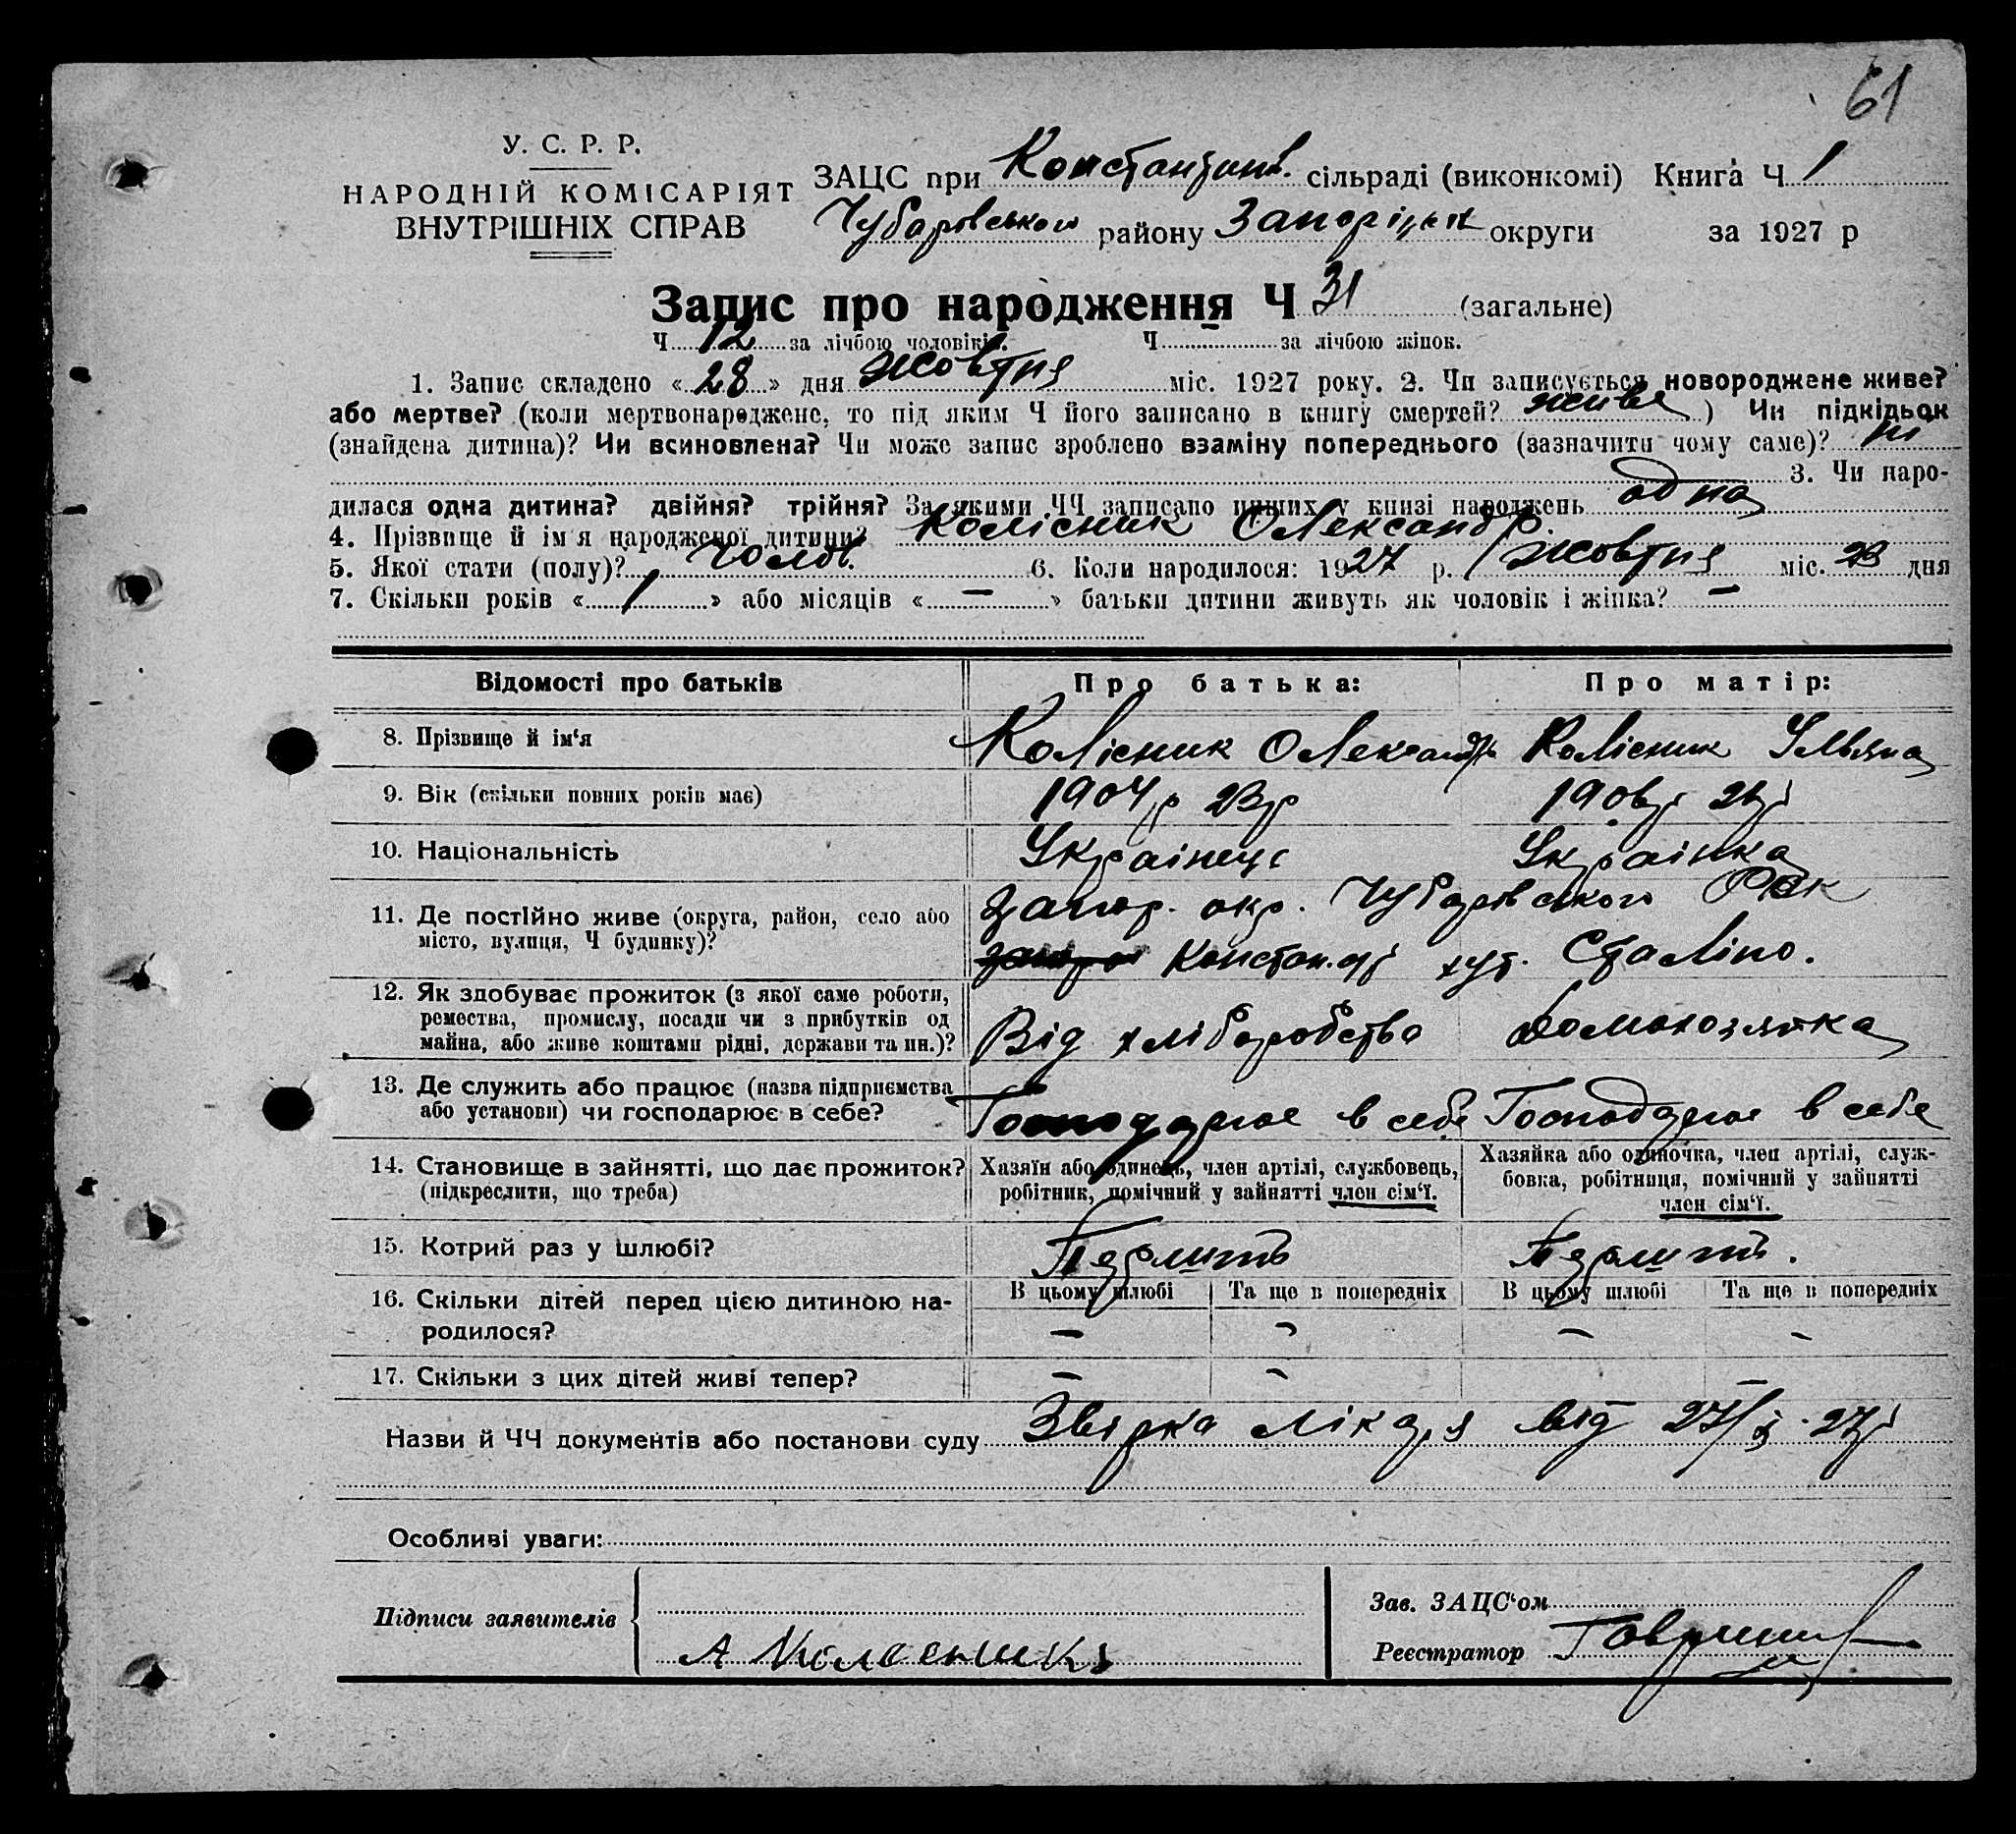 61
У. С. Р. Р.
НАРОДНІЙ КОМІСАРІЯТ
ВНУТРІШНІХ СПРАВ
ЗАЦС при Константинів. сільраді (виконкомі) Книга Ч 1
Чубарівського району Запоріцьк округи за 1927 р
Запис про народження Ч 31 (загальне)
Ч 12 за лічбою чоловіків. Ч – за лічбою жінок.
1. Запис складено « 28 » дня жовтня міс. 1927 року. 2. Чи записується новороджене живе?
або мертве? (коли мертвонароджене, то під яким Ч його записано в книгу смертей? живе) Чи підкідьок
(знайдена дитина)? Чи всиновлена? Чи може запис зроблено взаміну попереднього (зазначити чому саме)? ні
3. Чи наро-
дилася одна дитина? двійня? трійня? За якими ЧЧ записано инших у книзі народжень одна
4. Прізвище й ім'я народженої дитини? Колісник Олександр.
5. Якої стати (полу)? чолов. 6. Коли народилося: 1927 р. жовтня міс. 23 дня
7. Скільки років « 1 » або місяців « – » батьки дитини живуть як чоловік і жінка? –
Відомості про батьків Про батька: Про матір:
8. Прізвище й ім'я Колісник Олександр Колісник Ульяна
9. Вік (скільки повних років має) 1904р 23р 190
10. Національність Українець Українка
11. Де постійно живе (округа, район, село або місто, вулиця, Ч будинку)? Запор. окр. Чубарівського
Констан. хут. Сталіно.
12. Як здобуває прожиток (з якої саме роботи,
ремества, промислу, посади чи з прибутків од
майна, або живе коштами рідні, держави та ин.)? Від хліборобства Домохозяйка
13. Де служить або працює (назва підприємства
або установи) чи господарює в себе? Господарює в себе Господарює в себе
14. Становище в зайнятті, що дає прожиток?
(підкреслити, що треба)
Хазяїн або одинець, член артілі, службовець,
робітник, помічний у зайнятті член сім'ї.
Хазяйка або одиночка, член артілі, служ-
бовка, робітниця, помічний у зайнятті
член сім'ї.
15. Котрий раз у шлюбі? Перший Перший.
16. Скільки дітей перед цією дитиною на-
родилося?
В цьому шлюбі Та ще в попередніх В цьому шлюбі Та ще в попередніх
– – – –
17. Скільки з цих дітей живі тепер? – – –
Назви й ЧЧ документів або постанови суду лікаря від 27/X 27р
Особливі уваги:
Підписи заявителів
А Колесникъ
Зав. ЗАЦС'ом
Реєстратор